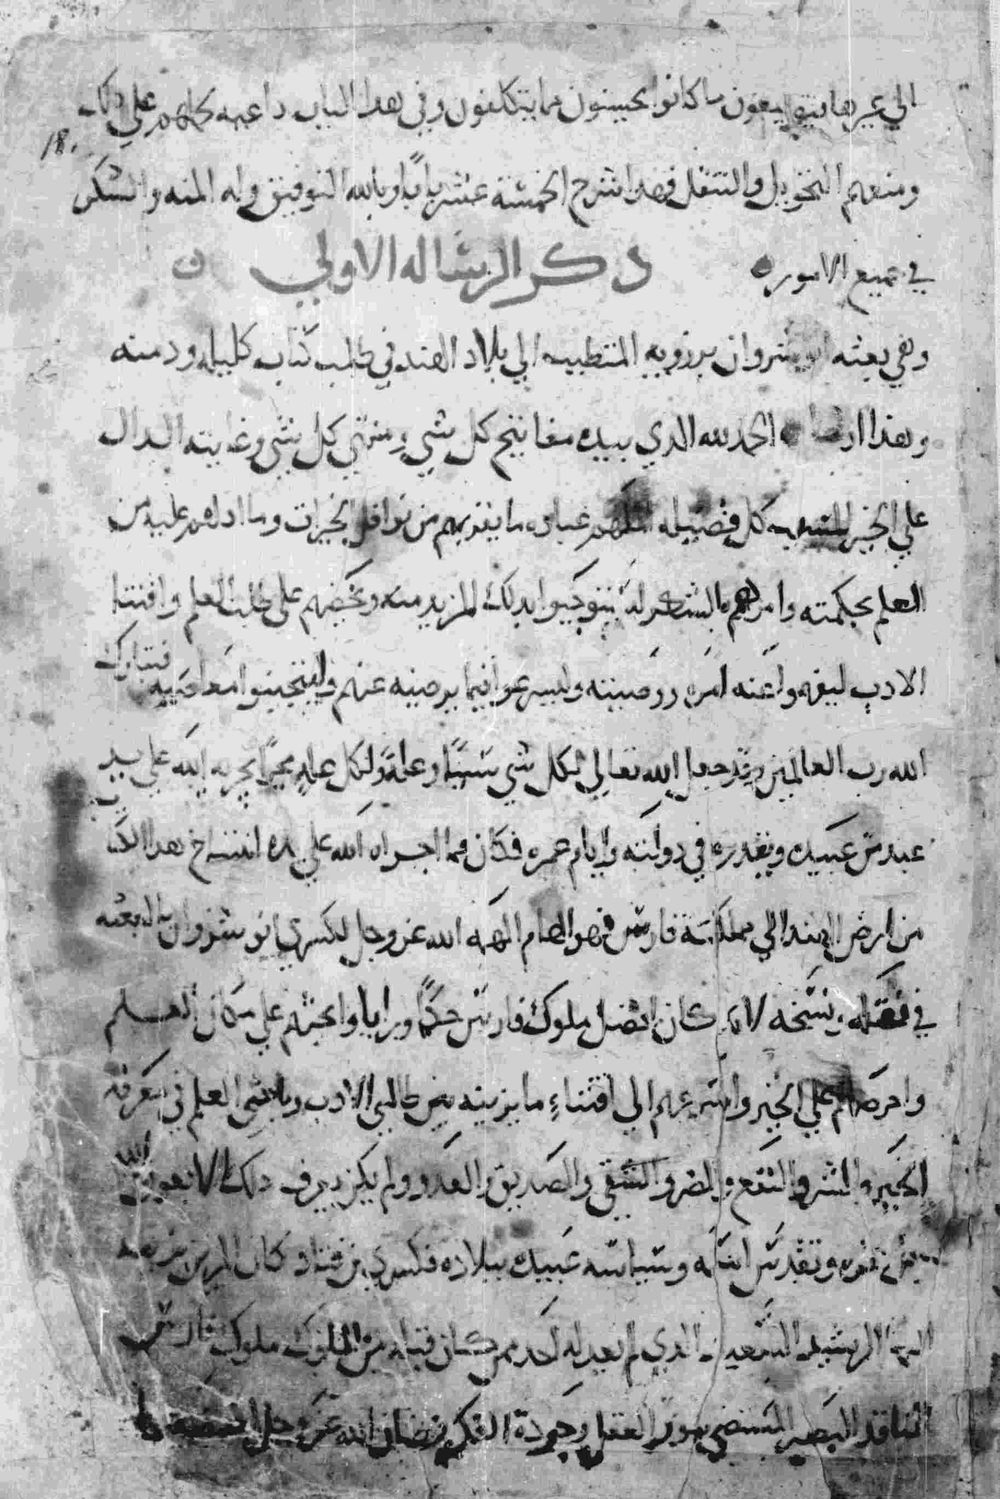 الي غيرها فيتبايعون ما كانوا يحبسون مما يتكلفون وفي هدا الباب داعيه كلهم علي دلك
18.
ومنعهم التخويل والتنقل فهدا شرح الخمسة عشر بابًا وبالله التوفيق وله المنه والشكر
في جميع الامور ه
دكر الرساله الاولي ن
وهي بعثه انوشروان برزويه المتطبب الي بلاد الهند في طلب كتاب كليله ودمنه
وهدا الحمد لله الدي بيده مفاتيح كل شي ومنتهي كل شي وغايته الدال
علي الخير كل فضيله عباده ما يقربهم من نوافل الخيرات وما ادلهم عليه من
العلم بحكمته وامرهم بالشكر له ليستوجبوا بدلك المزيد منه وحضهم علي طلب العلم واقتنا
الادب ليفهموا عنه امره ووصيته وليسرعوا فيما يرضيه عنهم وليجتنبوا معاصيه فتبارك
الله رب العالمين وقد جعل الله تعالي لكل شي سببًا وعلةً ولكل عله مجرًا يجريه الله علي يد
عبد من عبيده ويقدره في دولته وايام عمره فكان مما اجراه الله علي يده انتساخ هدا الكتاب
من ارض الهند الي مملكة فارس فهو الهام الهمه الله عز وجل لكسري انوشروان بالبعثه
في نسخه لانه كان افضل ملوك فارس حكمًا ورايا وابحثهم علي مكان العلم
واحرصهم علي الخير واسرعهم الي اقتناء ما يزينه من طالبي الادب وباغي العلم في معرفة
الخير والشر والنفع والضر والشقي والصديق والعدو ولم يكن يعرف دلك الا بعون الله
وتقدس وسياسه عبيده ببلاده فكسري بن قباد كان
السعيد الدي لم يعدله احد ممن كان قبله من الملوك ملوك فارس
الناقد البصير المستضي بنور العقل وجودة الفكر الله عز وجل